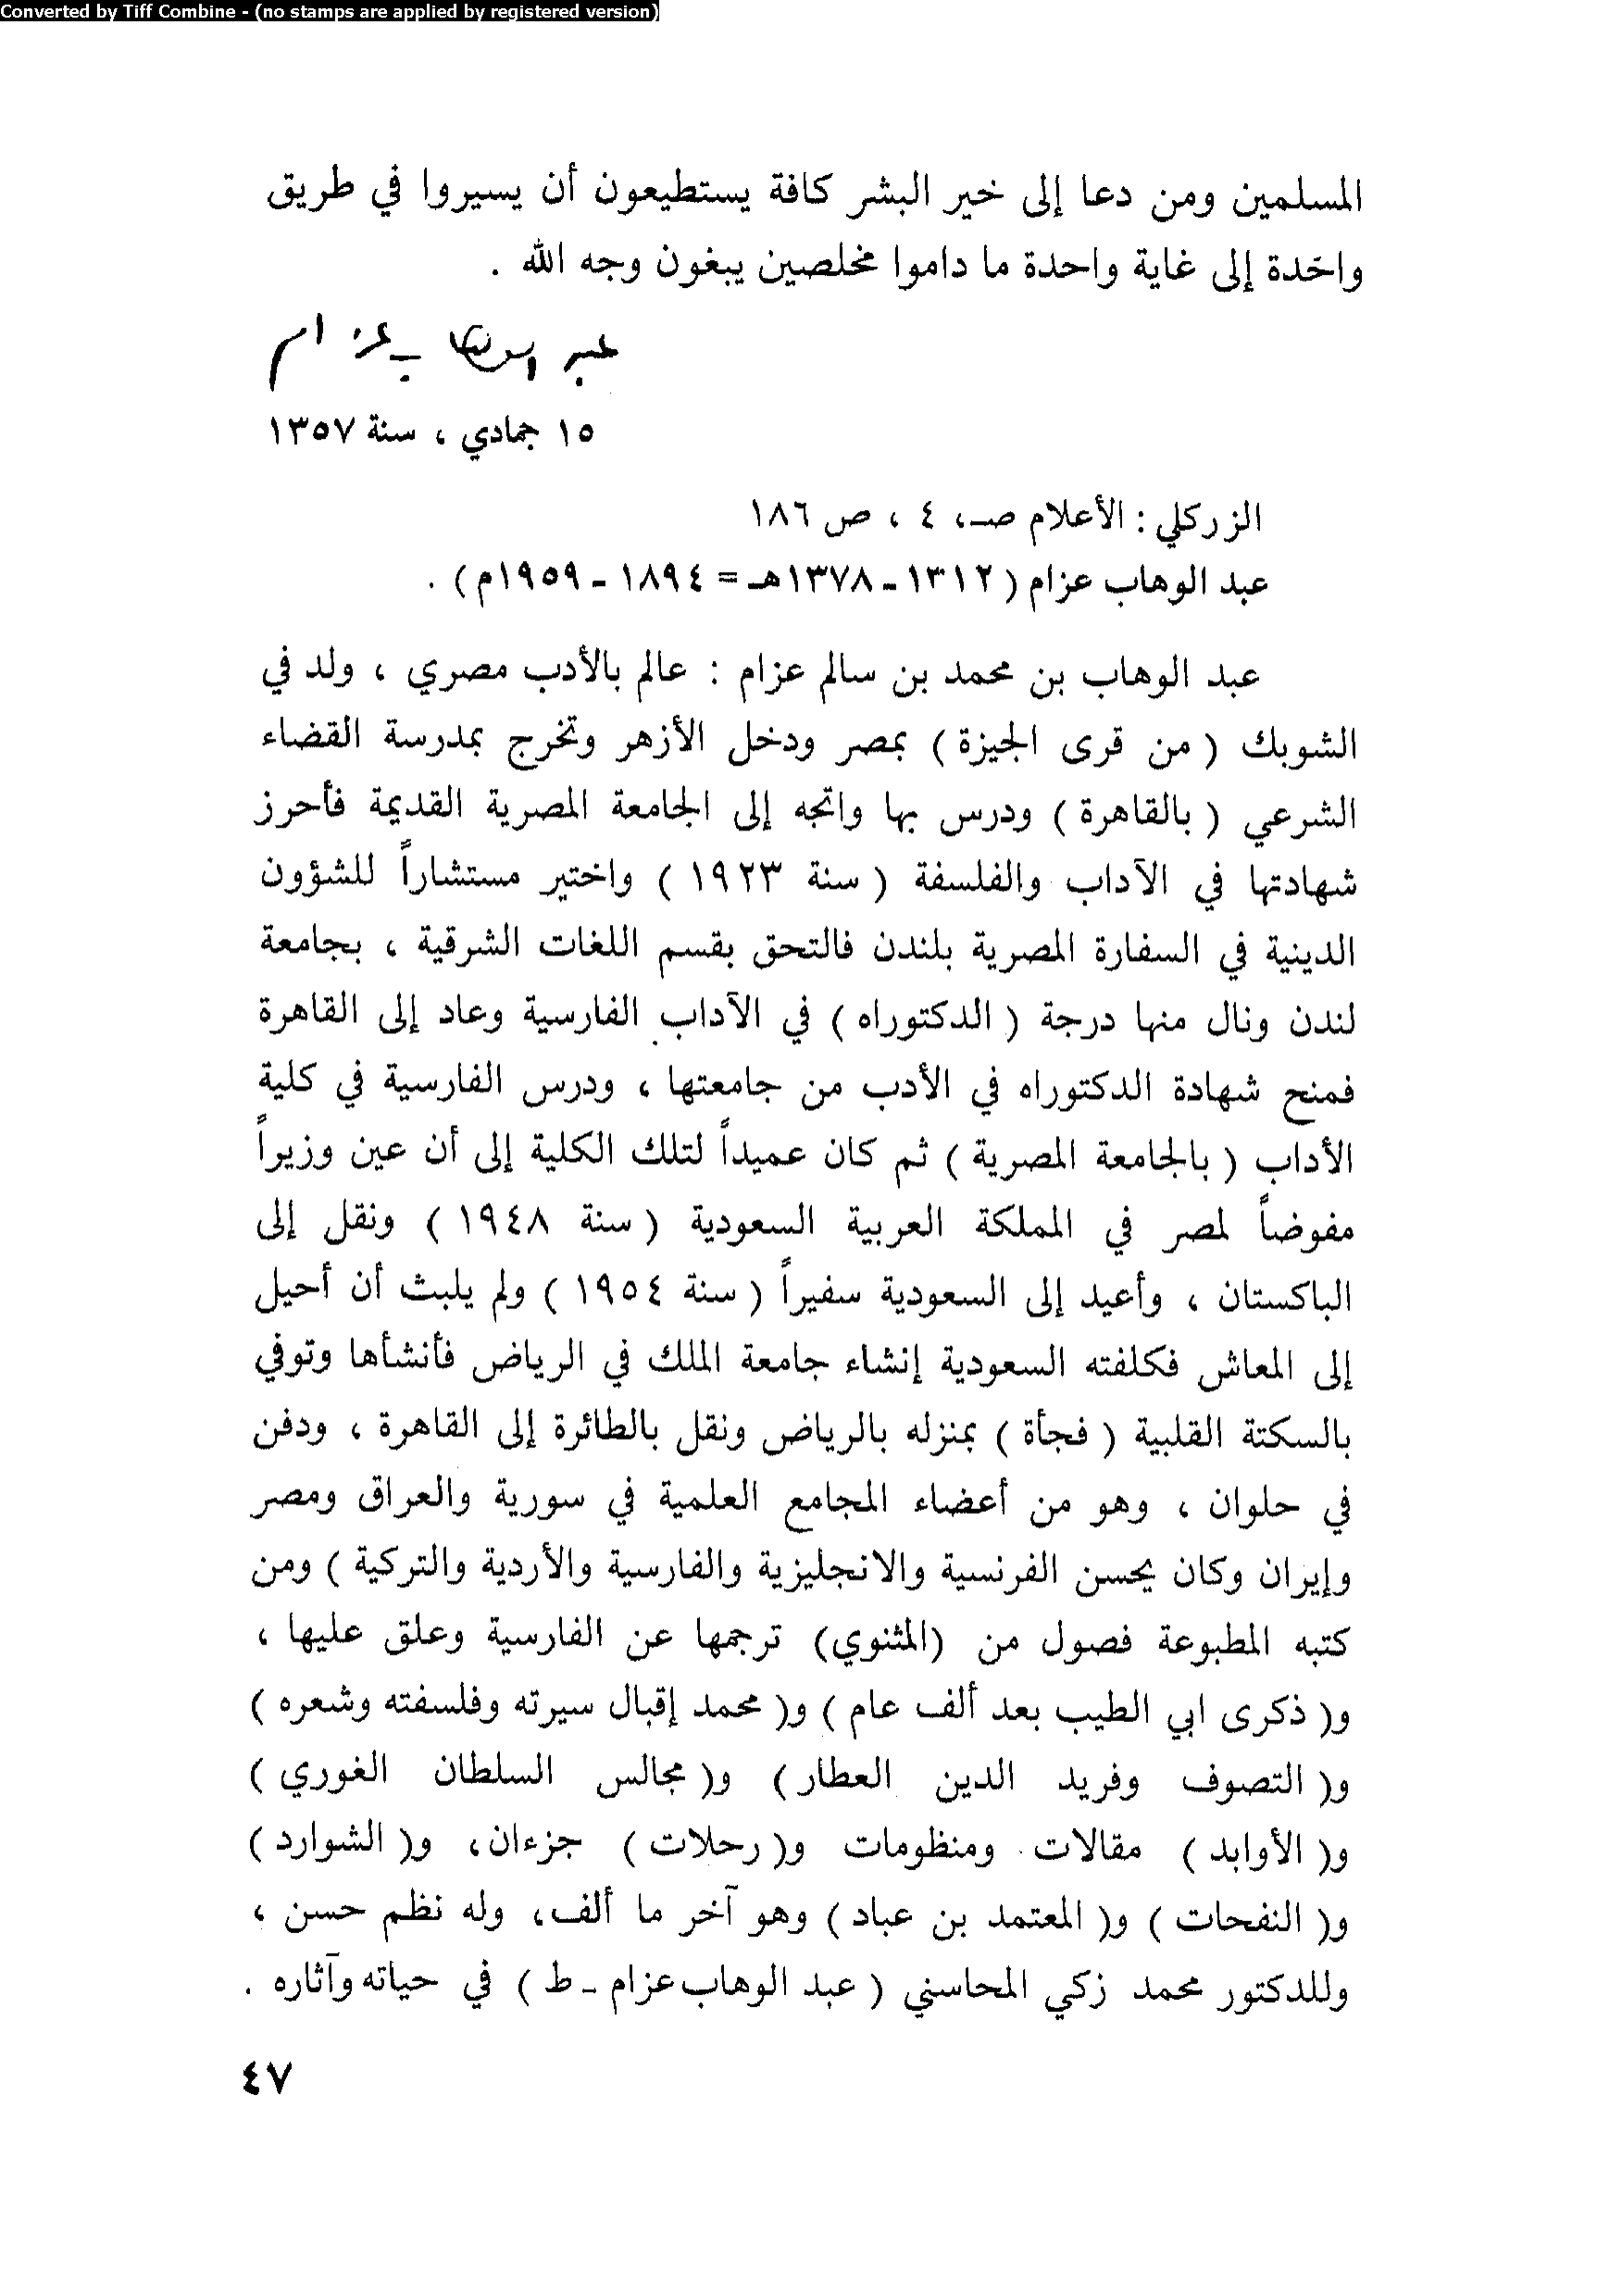 Converted by Tiff Combine - (no stamps are applied by registered version)
المسلمين ومن دعا إلى خير البشر كافة يستطيعون أن يسيروا في طريق
واحدة إلى غاية واحدة ما داموا مخلصين يبغون وجه الله .
عبد الوهاب عزام
١٥ جمادي ، سنة ١٣٥٧
الزركلي : الأعلام صـ، ٤ ، ص ١٨٦
عبد الوهاب عزام ( ١٣١٢ - ١٣٧٨هـ = ١٨٩٤ - ١٩٥٩م ) .
عبد الوهاب بن محمد بن سالم عزام : عالم بالأدب مصري ، ولد في
الشوبك ( من قرى الجيزة ) بمصر ودخل الأزهر وتخرج بمدرسة القضاء
الشرعي ( بالقاهرة ) ودرس بها واتجه إلى الجامعة المصرية القديمة فأحرز
شهادتها في الآداب والفلسفة ( سنة ١٩٢٣ ) واختير مستشاراً للشؤون
الدينية في السفارة المصرية بلندن فالتحق بقسم اللغات الشرقية ، بجامعة
لندن ونال منها درجة ( الدكتوراه ) في الآداب الفارسية وعاد إلى القاهرة
فمنح شهادة الدكتوراه في الأدب من جامعتها ، ودرس الفارسية في كلية
الأداب ( بالجامعة المصرية ) ثم كان عميداً لتلك الكلية إلى أن عين وزيراً
مفوضاً لمصر في المملكة العربية السعودية ( سنة ١٩٤٨ ) ونقل إلى
الباكستان ، وأعيد إلى السعودية سفيراً ( سنة ١٩٥٤ ) ولم يلبث أن أحيل
إلى المعاش فكلفته السعودية إنشاء جامعة الملك في الرياض فأنشأها وتوفي
بالسكتة القلبية ( فجأة ) بمنزله بالرياض ونقل بالطائرة إلى القاهرة ، ودفن
في حلوان ، وهو من أعضاء المجامع العلمية في سورية والعراق ومصر
وإيران وكان يحسن الفرنسية والانجليزية والفارسية والأردية والتركية ) ومن
كتبه المطبوعة فصول من (المثنوي) ترجمها عن الفارسية وعلق عليها ،
و( ذكرى ابي الطيب بعد ألف عام ) و( محمد إقبال سيرته وفلسفته وشعره )
و( التصوف وفريد الدين العطار ) و( مجالس السلطان الغوري )
و( الأوابد ) مقالات ومنظومات و( رحلات ) جزءان، و( الشوارد )
و( النفحات ) و( المعتمد بن عباد ) وهو آخر ما ألف، وله نظم حسن ،
وللدكتور محمد زكي المحاسني ( عبد الوهاب عزام - ط ) في حياته وآثاره .
٤٧